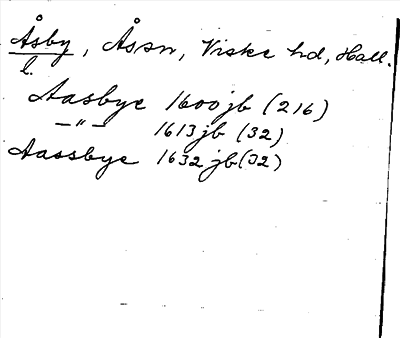 Åsby, Åssn, Viske hd, Hall.
l.
Aasbye 1600 jb (216)
—"— 1613 jb (32)
Aassbye 1632 jb (32)